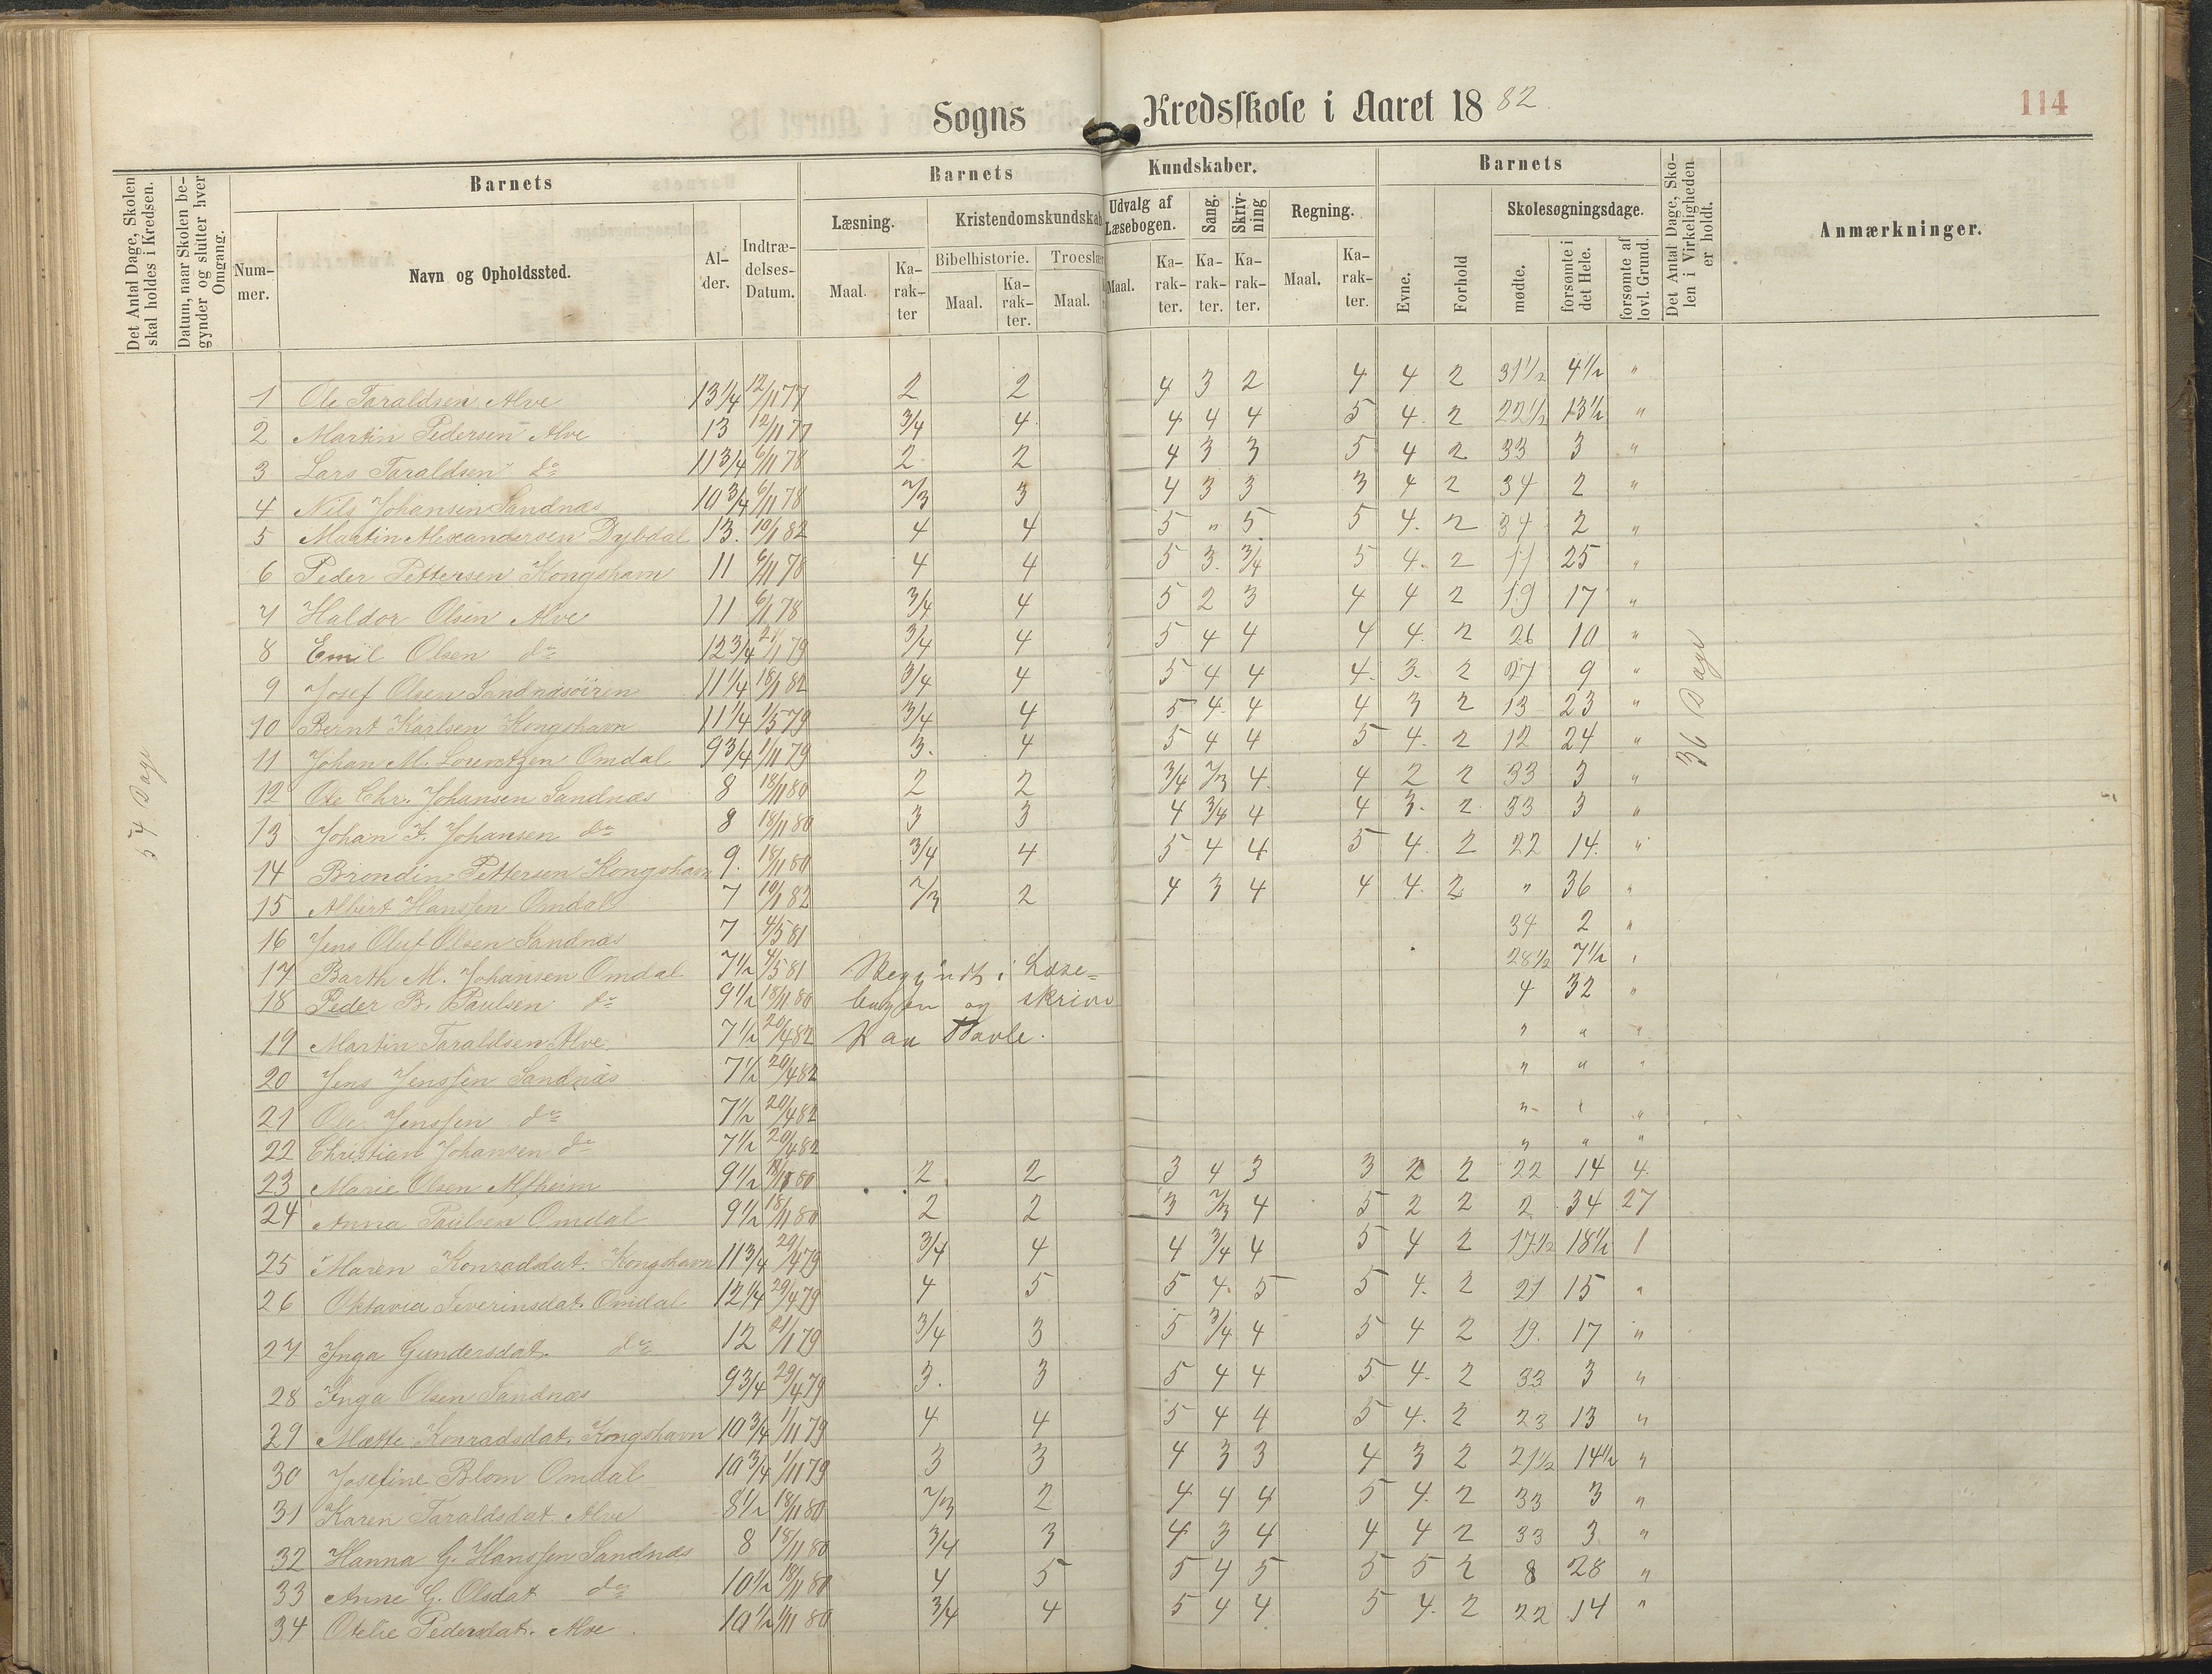 Sogns Kredsskole i Aaret 1882. 114
Det Antal Dage, Skolen skal holdes i Kredsen.
Datum, naar Skolen begynder og slutter hver Omgang.
Barnets
Nummer. Navn og Opholdssted. Alder. Indtrædelses-Datum.
Barnets Kundskaber.
Læsning. Kristendomskundskab Udvalg af Læsebogen. Sang. Skrivning Regning.
Bibelhistorie. Troeslær
Maal. Karakter Maal. Karakter. Maal. Maal. Karakter. Karakter. Karakter. Maal. Karakter.
Barnets
Evne. Forhold Skolesøgningsdage.
mødte. forsømte i det Hele. forsømte af lovl. Grund.
Det Antal Dage, Skolen i Virkeligheden er holdt.
Anmærkninger.
54 Dage
36 Dage
1 Ole Taraldsen Alve 13 1/4 12/11 77 2 2 4 3 2 4 4 2 31 1/2 4 1/2 "
2 Martin Pedersen Alve 13 12/11 77 3/4 4 4 4 4 5 4. 2 22 1/2 13 1/2 "
3 Lars Taraldsen do 11 3/4 6/11 78 2 2 4 3 3 5 4 2 33 3 "
4 Nils Johansen Sandnæs 10 3/4 6/11 78 2/3 3 4 3 3 3 4 2 34 2 "
5 Martin Alexandersen Dybdal 13. 10/1 82 4 4 5 " 5 5 4. 2 34 2 "
6 Peder Pettersen Kongshavn 11 6/11 78 4 4 5 3. 3/4 5 4. 2 11 25 "
7 Haldor Olsen Alve 11 6/11 78 3/4 4 5 2 3 4 4 2 19 17 "
8 Emil Olsen do 12 3/4 21/1 79 3/4 4 5 4 4 4 4. 2 26 10 "
9 Josef Olsen Sandnæsöiren 11 1/4 18/1 82 3/4 4 5 4 4 4. 3. 2 27 9 "
10 Bernt Karlsen Kongshavn 11 1/4 1/5 79 3/4 4 5 4 4 4 3 2 13 23 "
11 Johan M. Lorentzen Omdal 9 3/4 1/11 79 3. 4 5 4 4 5 4. 2 12 24 "
12 Ole Chr. Johansen Sandnæs 8 18/11 80 2 2 3/4 2/3 4. 4 2 2 33 3 "
13 Johan F. Johansen do 8 18/11 80 3 3 4 3/4 4 4 3. 2 33 3 "
14 Brendin Pettersen Kongshavn 9. 18/11 80 3/4 4 5 4 4 5 4. 2 22 14. "
15 Albert Hanssen Omdal 7 10/1 82 2/3 2 4 3 4 4 4. 2 " 36 "
16 Jens Oluf Olsen Sandnæs 7 4/5 81 34 2 "
17 Barth M. Johansen Omdal 7 1/2 4/5 81 Begyndt i Læse= 28 1/2 7 1/2 "
18 Peder B. Paulsen do 9 1/2 18/11 80 bogen og skrive 4 32 "
19 Martin Taraldsen Alve 7 1/2 20/4 82 paa Tavle. " " "
20 Jens Jenssen Sandnæs 7 1/2 20/4 82 " " "
21 Ole Jenssen do 7 1/2 20/4 82 " " "
22 Christian Johansen do 7 1/2 20/4 82 " " "
23 Marie Olsen Alfheim 9 1/2 18/11 80 2 2 3 4 3 3 2 2 22 14 4
24 Anna Paulsen Omdal 9 1/2 18/11 80 2 2 3 2/3 4 5 2 2 2 34 27
25 Maren Konradsdat. Kongshavn 11 3/4 29/4 79 3/4 4 4 3/4 4 5 4 2 17 1/2 18 1/2 1
26 Oktavia Severinsdat. Omdal 12 1/4 29/4 79 4 5 5 4. 5 5 4. 2 21 15 "
27 Inga Gundersdat. do 12 21/1 79 3/4 3 5 3/4 4 5 4 2 19. 17 "
28 Inga Olsen Sandnæs 9 3/4 29/4 79 3. 3 5 4 4 5 4. 2 33 3 "
29 Mætte Konradsdat. Kongshavn 10 3/4 1/11 79 4 4 5 4 4 5 4. 2 23 13 "
30 Josefine Blom Omdal 10 3/4 1/11 79 3 3 4 3 3 4 3 2 21 1/2 14 1/2 "
31 Karen Taraldsdat. Alve 8 1/2 18/11 80 2/3 2 4 4 4 5 4. 2 33 3 "
32 Hanna G. Hanssen Sandnæs 8 18/11 80 3/4 3 4 3 4 4 4 2 33 3 "
33 Anne G. Olsdat do 10 1/2 18/11 80 4 5 5 4 5 5 5 2 8 28 "
34 Otelie Pedersdat. Alve 10 1/2 1/11 80 3/4 4 5 4 4 5 4. 2 22 14 "